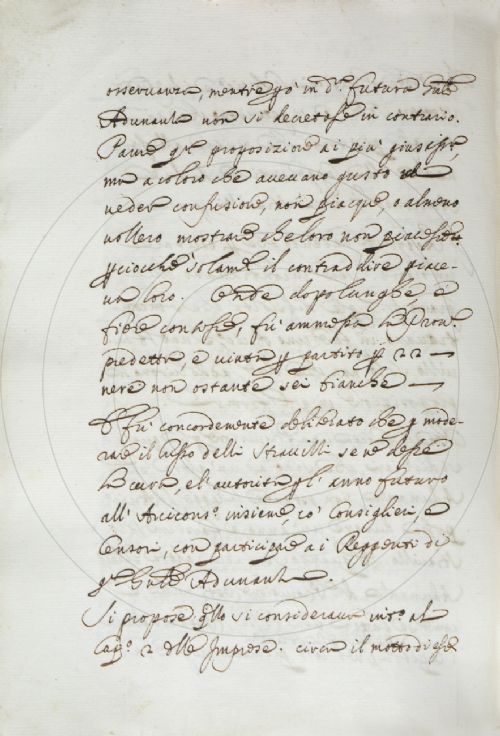 osservanza, mentre però in d.ᵃ futura Gnle
Adunanza non si decretasse in contrario.
Parve q.ᵃ proposizione ai più giusta,
ma a coloro che avevano gusto
veder confusione, non piacque, o almeno
vollero mostrare che loro non piacesse
p̱ciocche solam.ᵉ il contraddire piace-
va loro. Onde dopo lunghe e
fiere contese, fù ammessa la Prop.ᵉ
predetta, e vinta p̱ partito p̱ 22 —
nere non ostante sei bianche —
E fu' concordemente deliberato che p̱ mode-
rare il lusso delli Stravilli se ne desse
la cura, e l'autorità p̱ l'anno futuro
all' Arcicons.ᵒ insieme, co' Consiglieri, e
Censori, con participare ai Reggenti di
q.ᵃ Gnle Adunanza.
Si propose q̱llo si considerava int.ᵒ al
Cap.ᵒ 2 dlle Imprese. circa il motto di esse